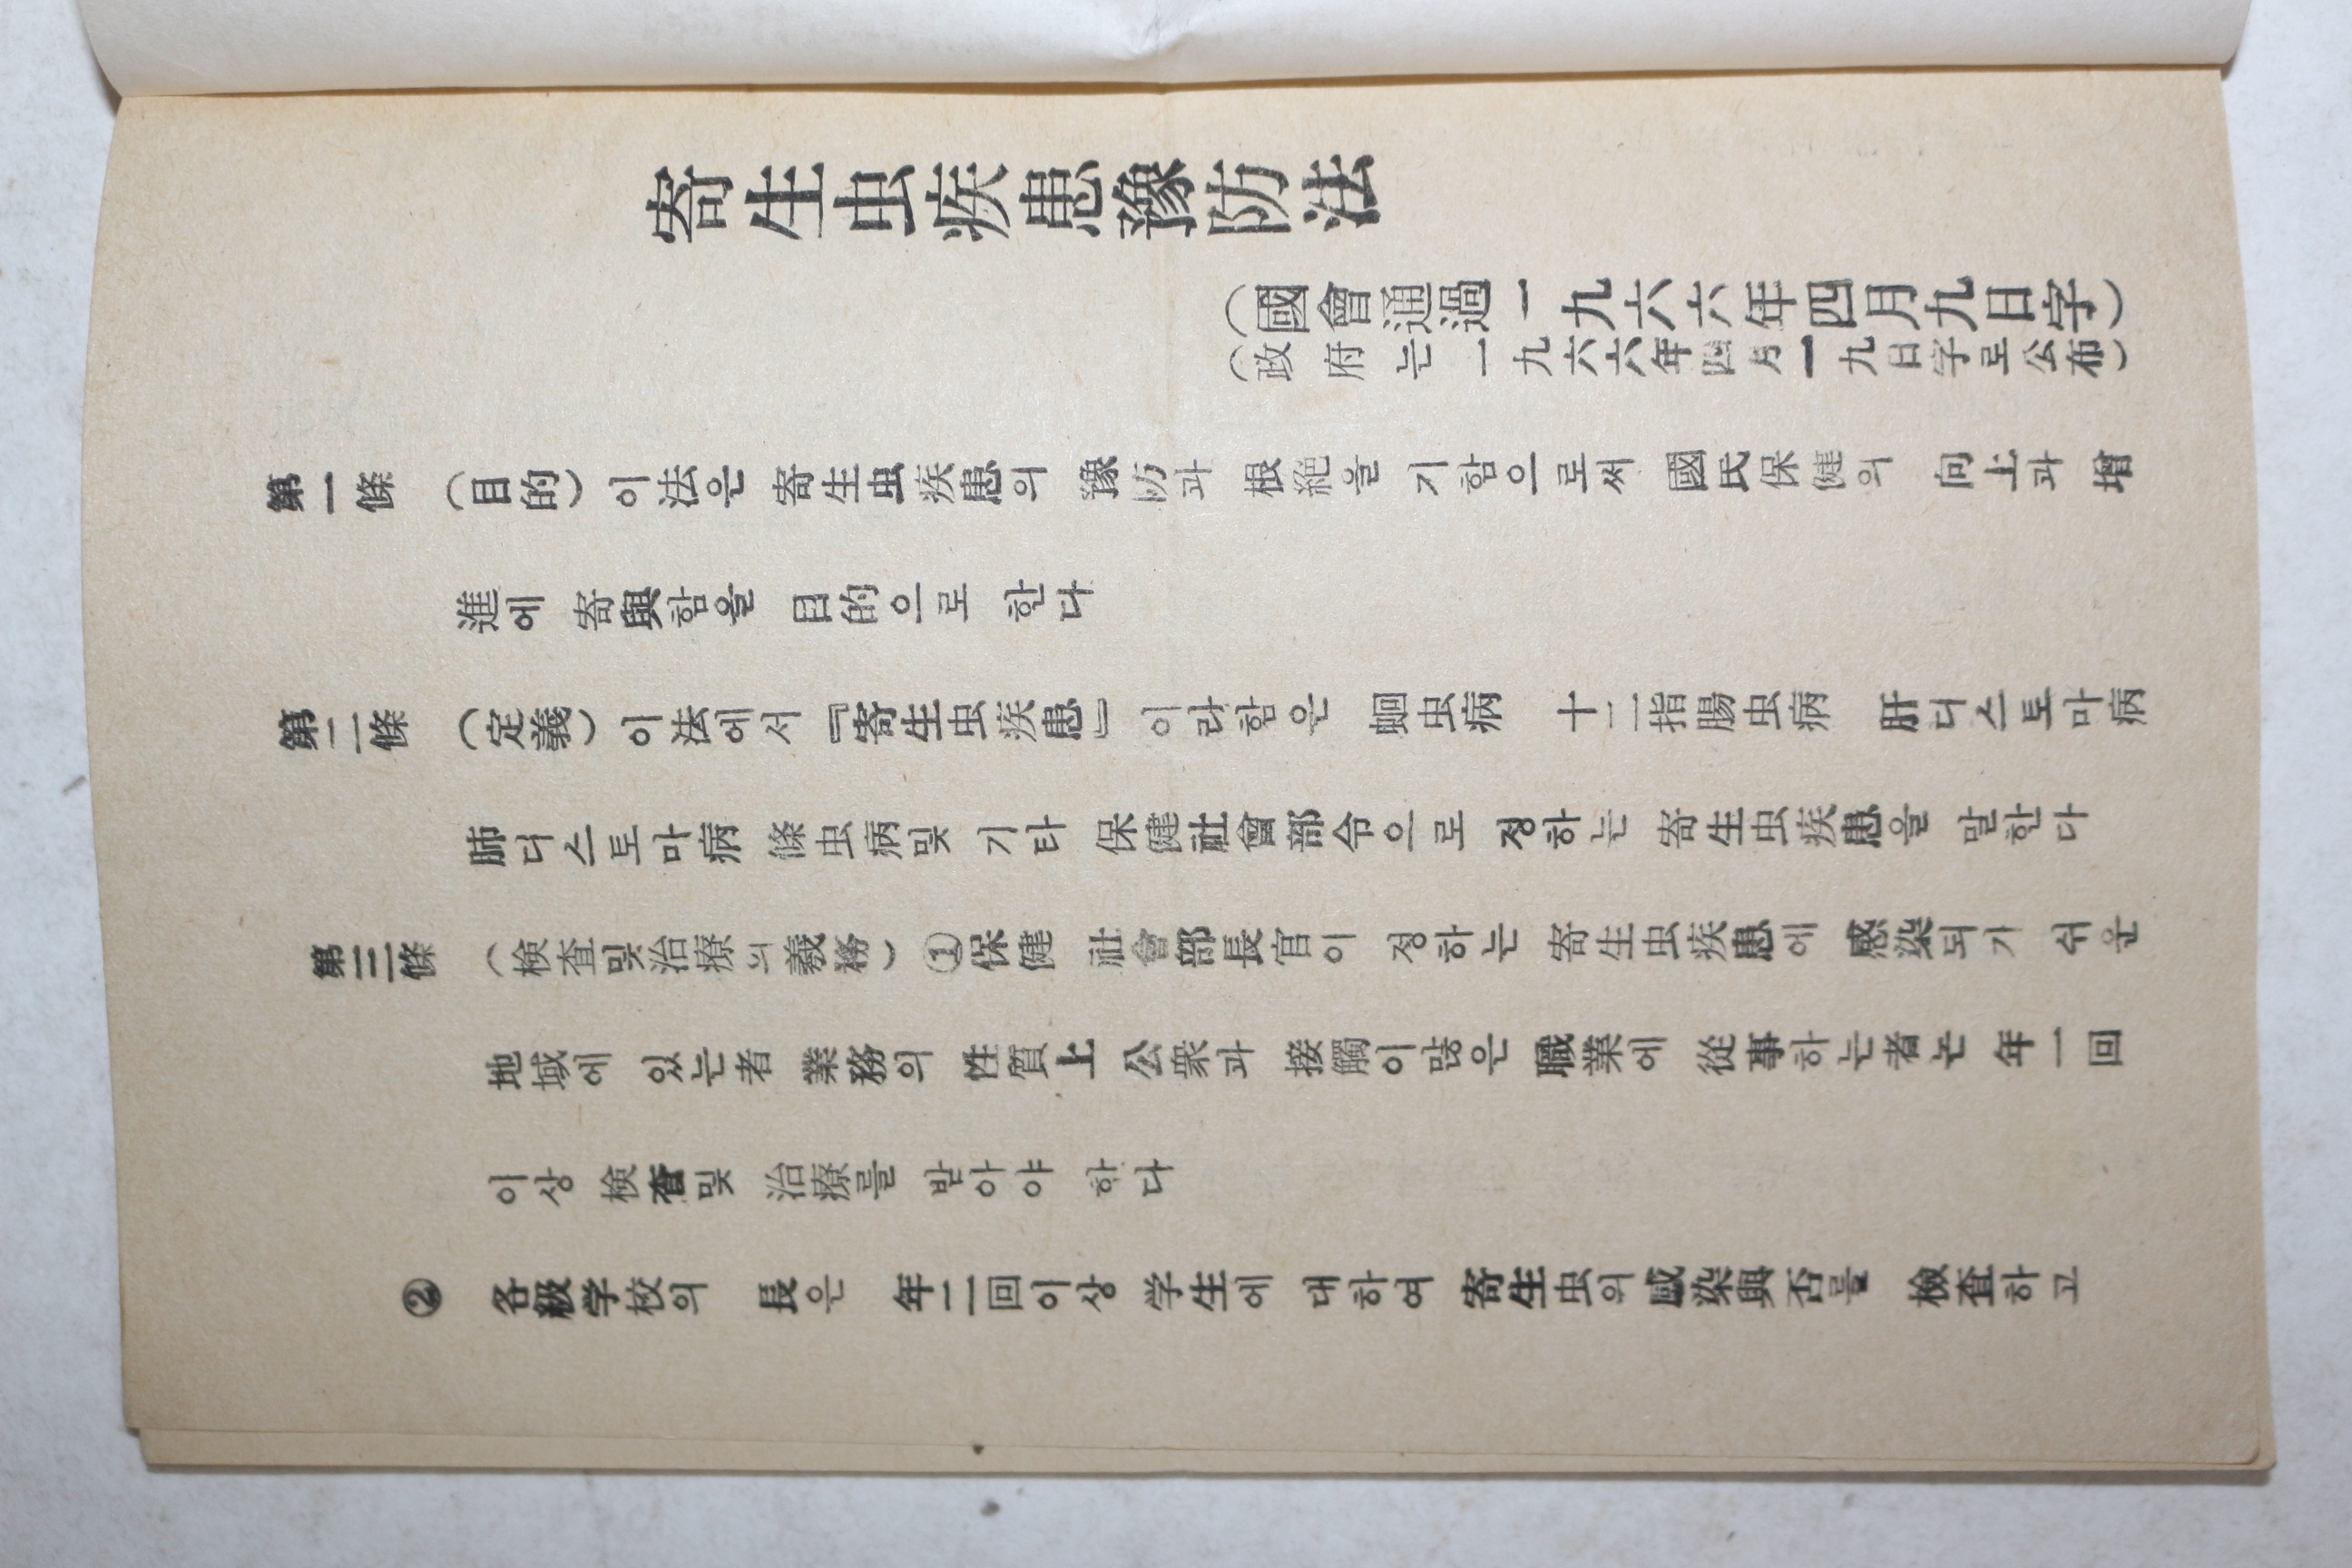 寄生虫疾患豫防法
(國會通過一九六六年四月九日字)
(政府는一九六六年四月一九日字로公布)
第一條 (目的) 이法은 寄生虫疾患의 豫防과 根絶을 기함으로써 國民保健의 向上과 增
進에 寄與함을 目的으로 한다
第二條 (定義) 이法에서 『寄生虫疾患』 이라함은 蛔虫病 十二指腸虫病 肝디스토마病
肺디스토마病 條虫病및 기타 保健社會部令으로 정하는 寄生虫疾患을 말한다
第三條 (検査및治療의義務) ①保健 社會部長官이 정하는 寄生虫疾患에 感染되기 쉬운
地域에 있는者 業務의 性質上 公衆과 接觸이많은 職業에 從事하는者는 年一回
이상 検査및 治療를 받아야 한다
② 各級学校의 長은 年二回이상 学生에 대하여 寄生虫의感染與否를 檢査하고